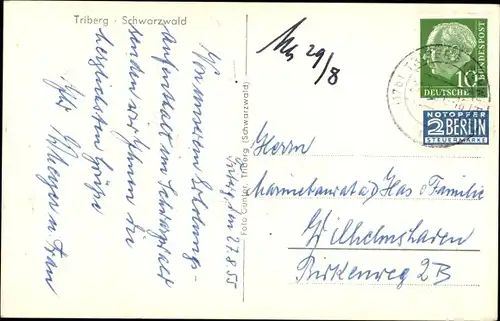 Triberg - Schwarzwald
Triberg, den 27.8.55
Von unserem Erholungs-
aufenthalt im Schwarzwald
senden wir Ihnen die
herzlichsten Grüße
Ihr Meyer u Frau
Foto Günter, Triberg (Schwarzwald)
29/8
10
DEUTSCHE
BUNDESPOST
NOTOPFER
2 BERLIN
STEUERMARKE
Herrn
Marinebaurat a/D Has u Familie
Wilhelmshaven
Birkenweg 2B